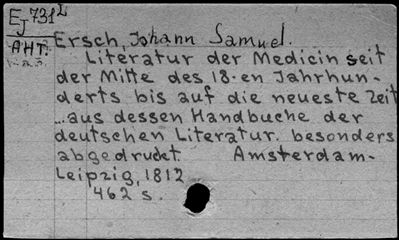 EJ 731²
АНТ.
Ersch, Johann Samuel.
Literatur der Medicin seit
der Mitte des 18-en Jahrhun-
derts bis auf die neueste Zeit
...aus dessen Handbuche der
deutschen Literatur besonders
abgedruckt. Amsterdam-
Leipzig, 1812
462 s.